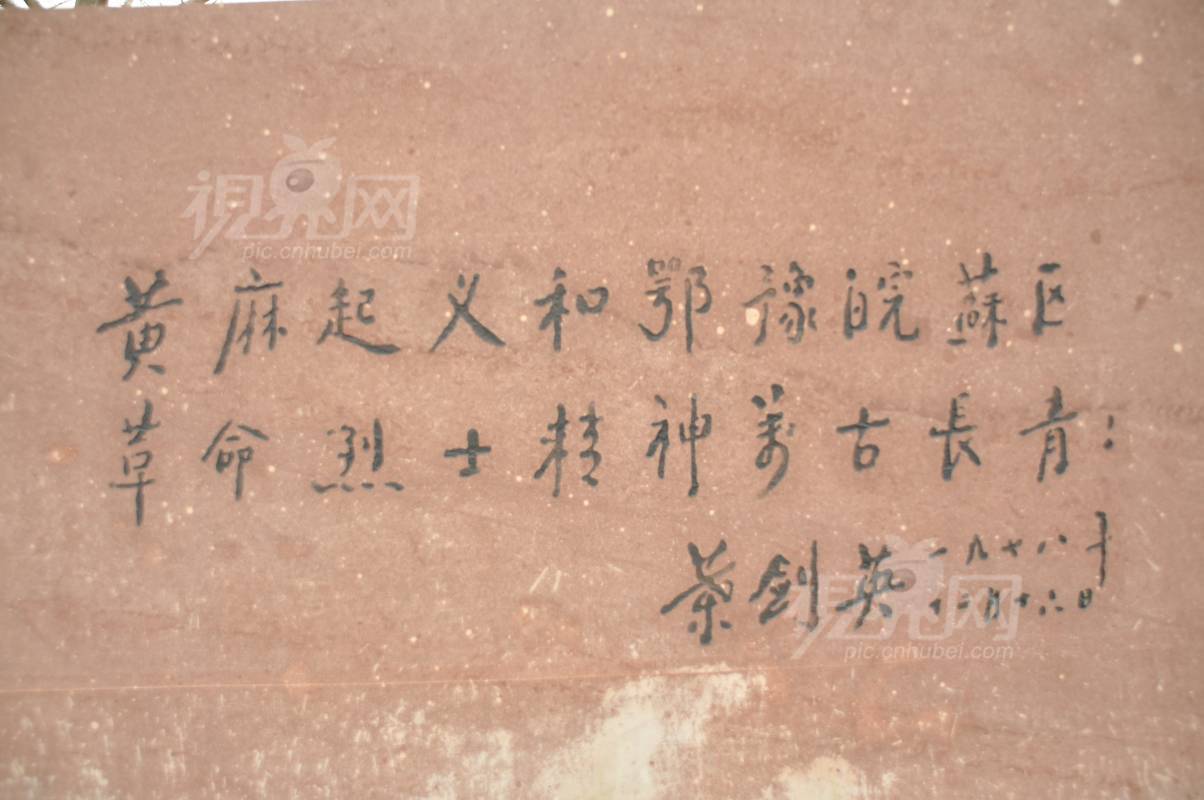 視界网
pic.cnhubei.com
黄麻起义和鄂豫皖蘇区
革命烈士精神萬古長青:
葉劍英
一九七八年
十二月十六日
視界网
pic.cnhubei.com